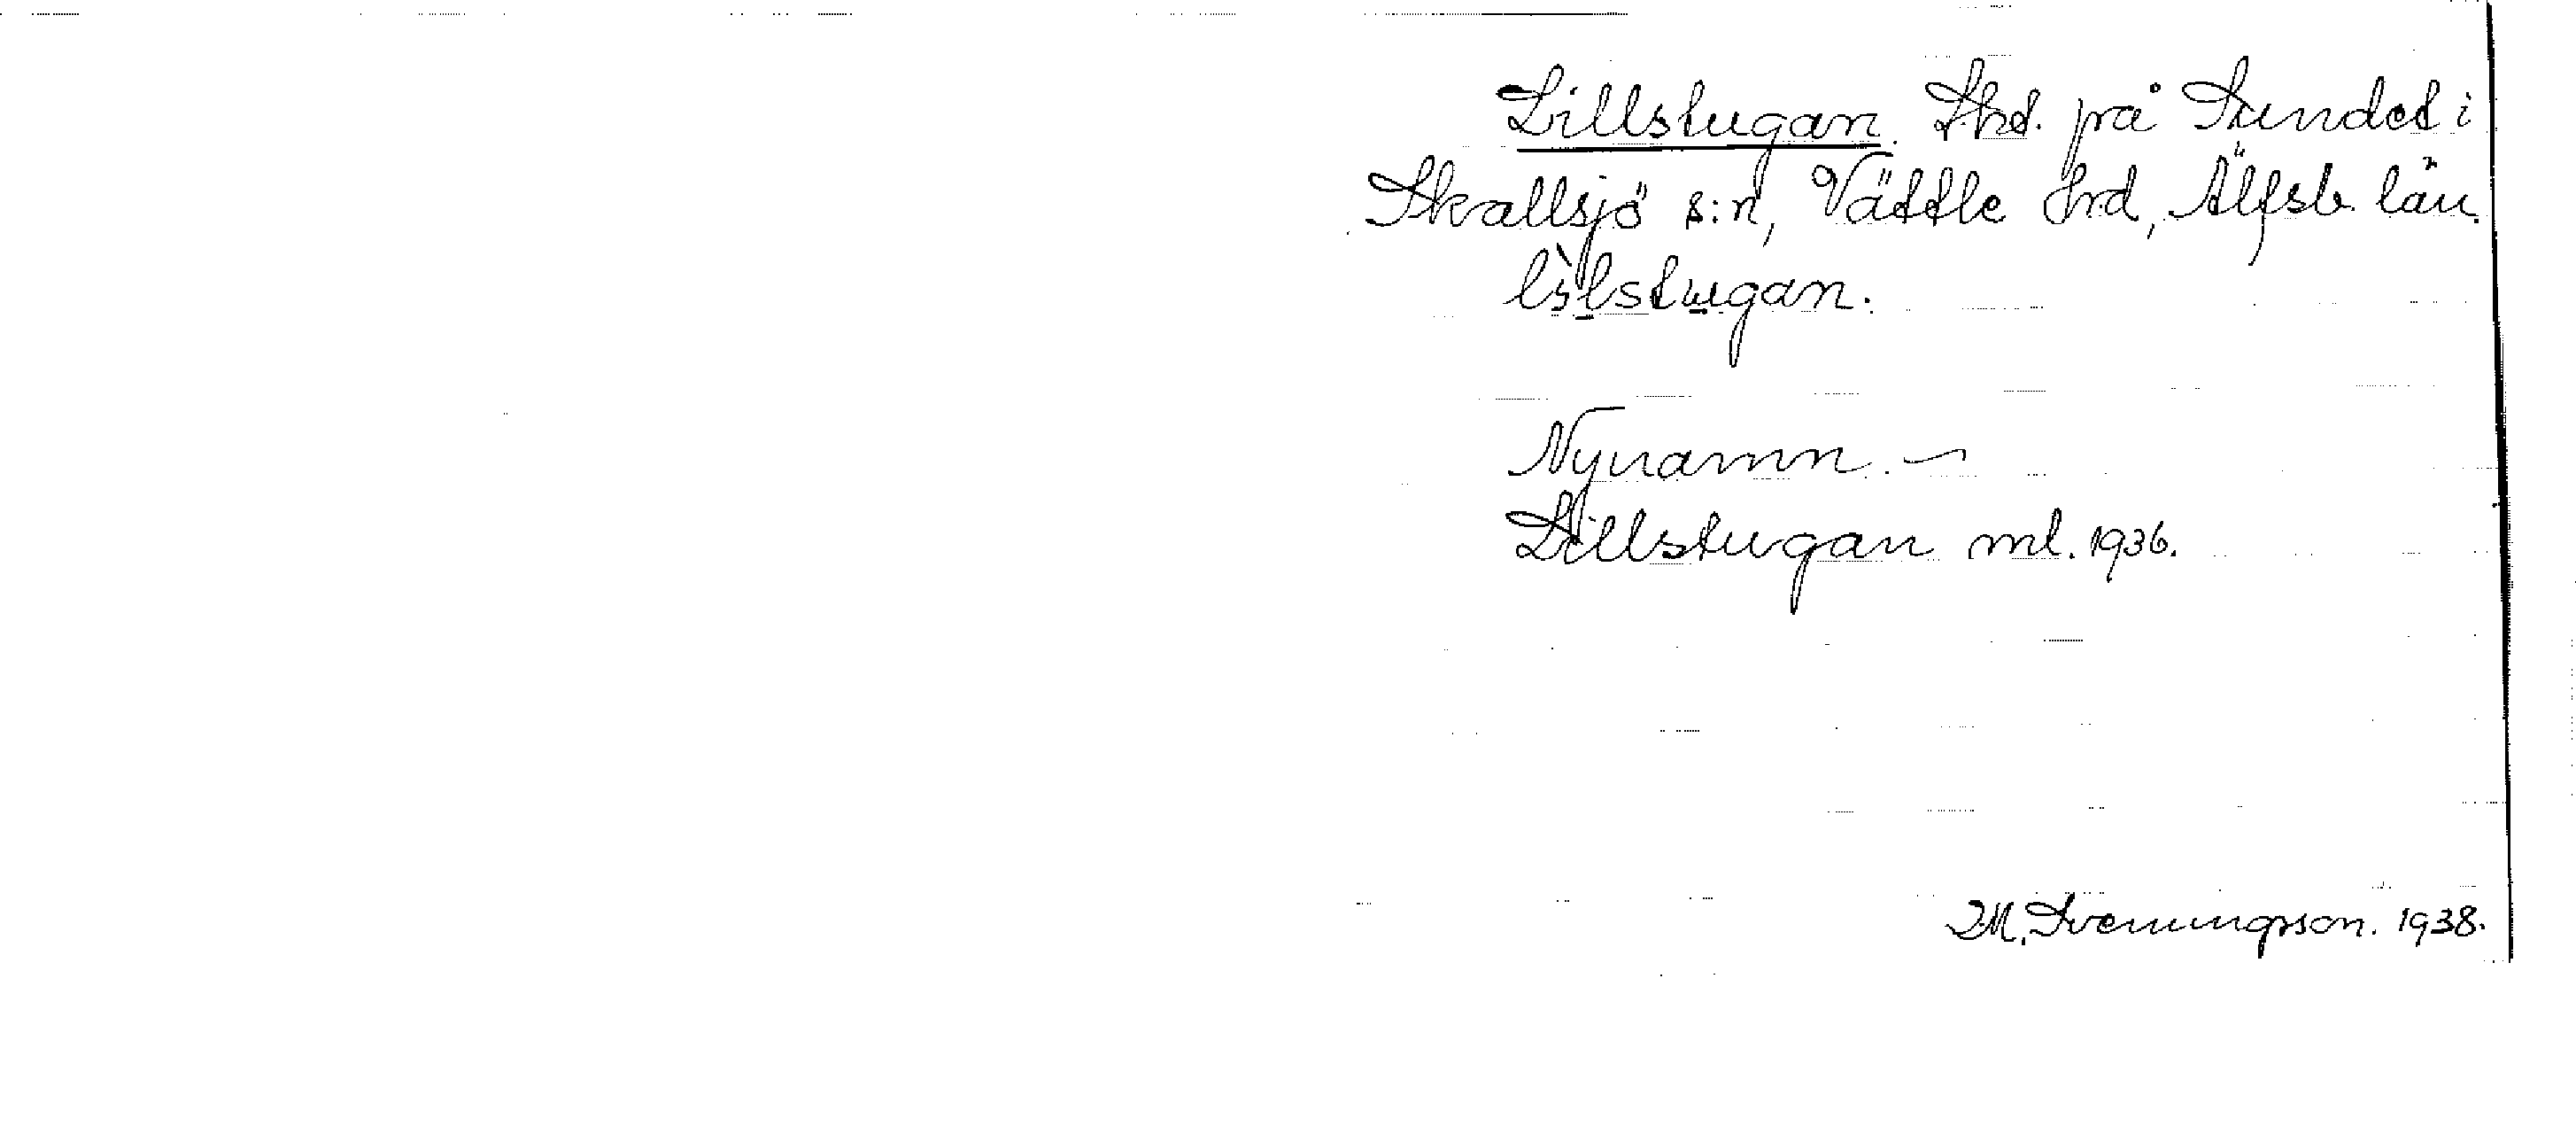 Lillstugan. Shd. på Sundet i
Skallsjö s:n, Vättle hrd, Älfsb. län.
lìlstugan.
Nynamn. ~
Lillstugan ml. 1936.
M. Sveningsson. 1938.